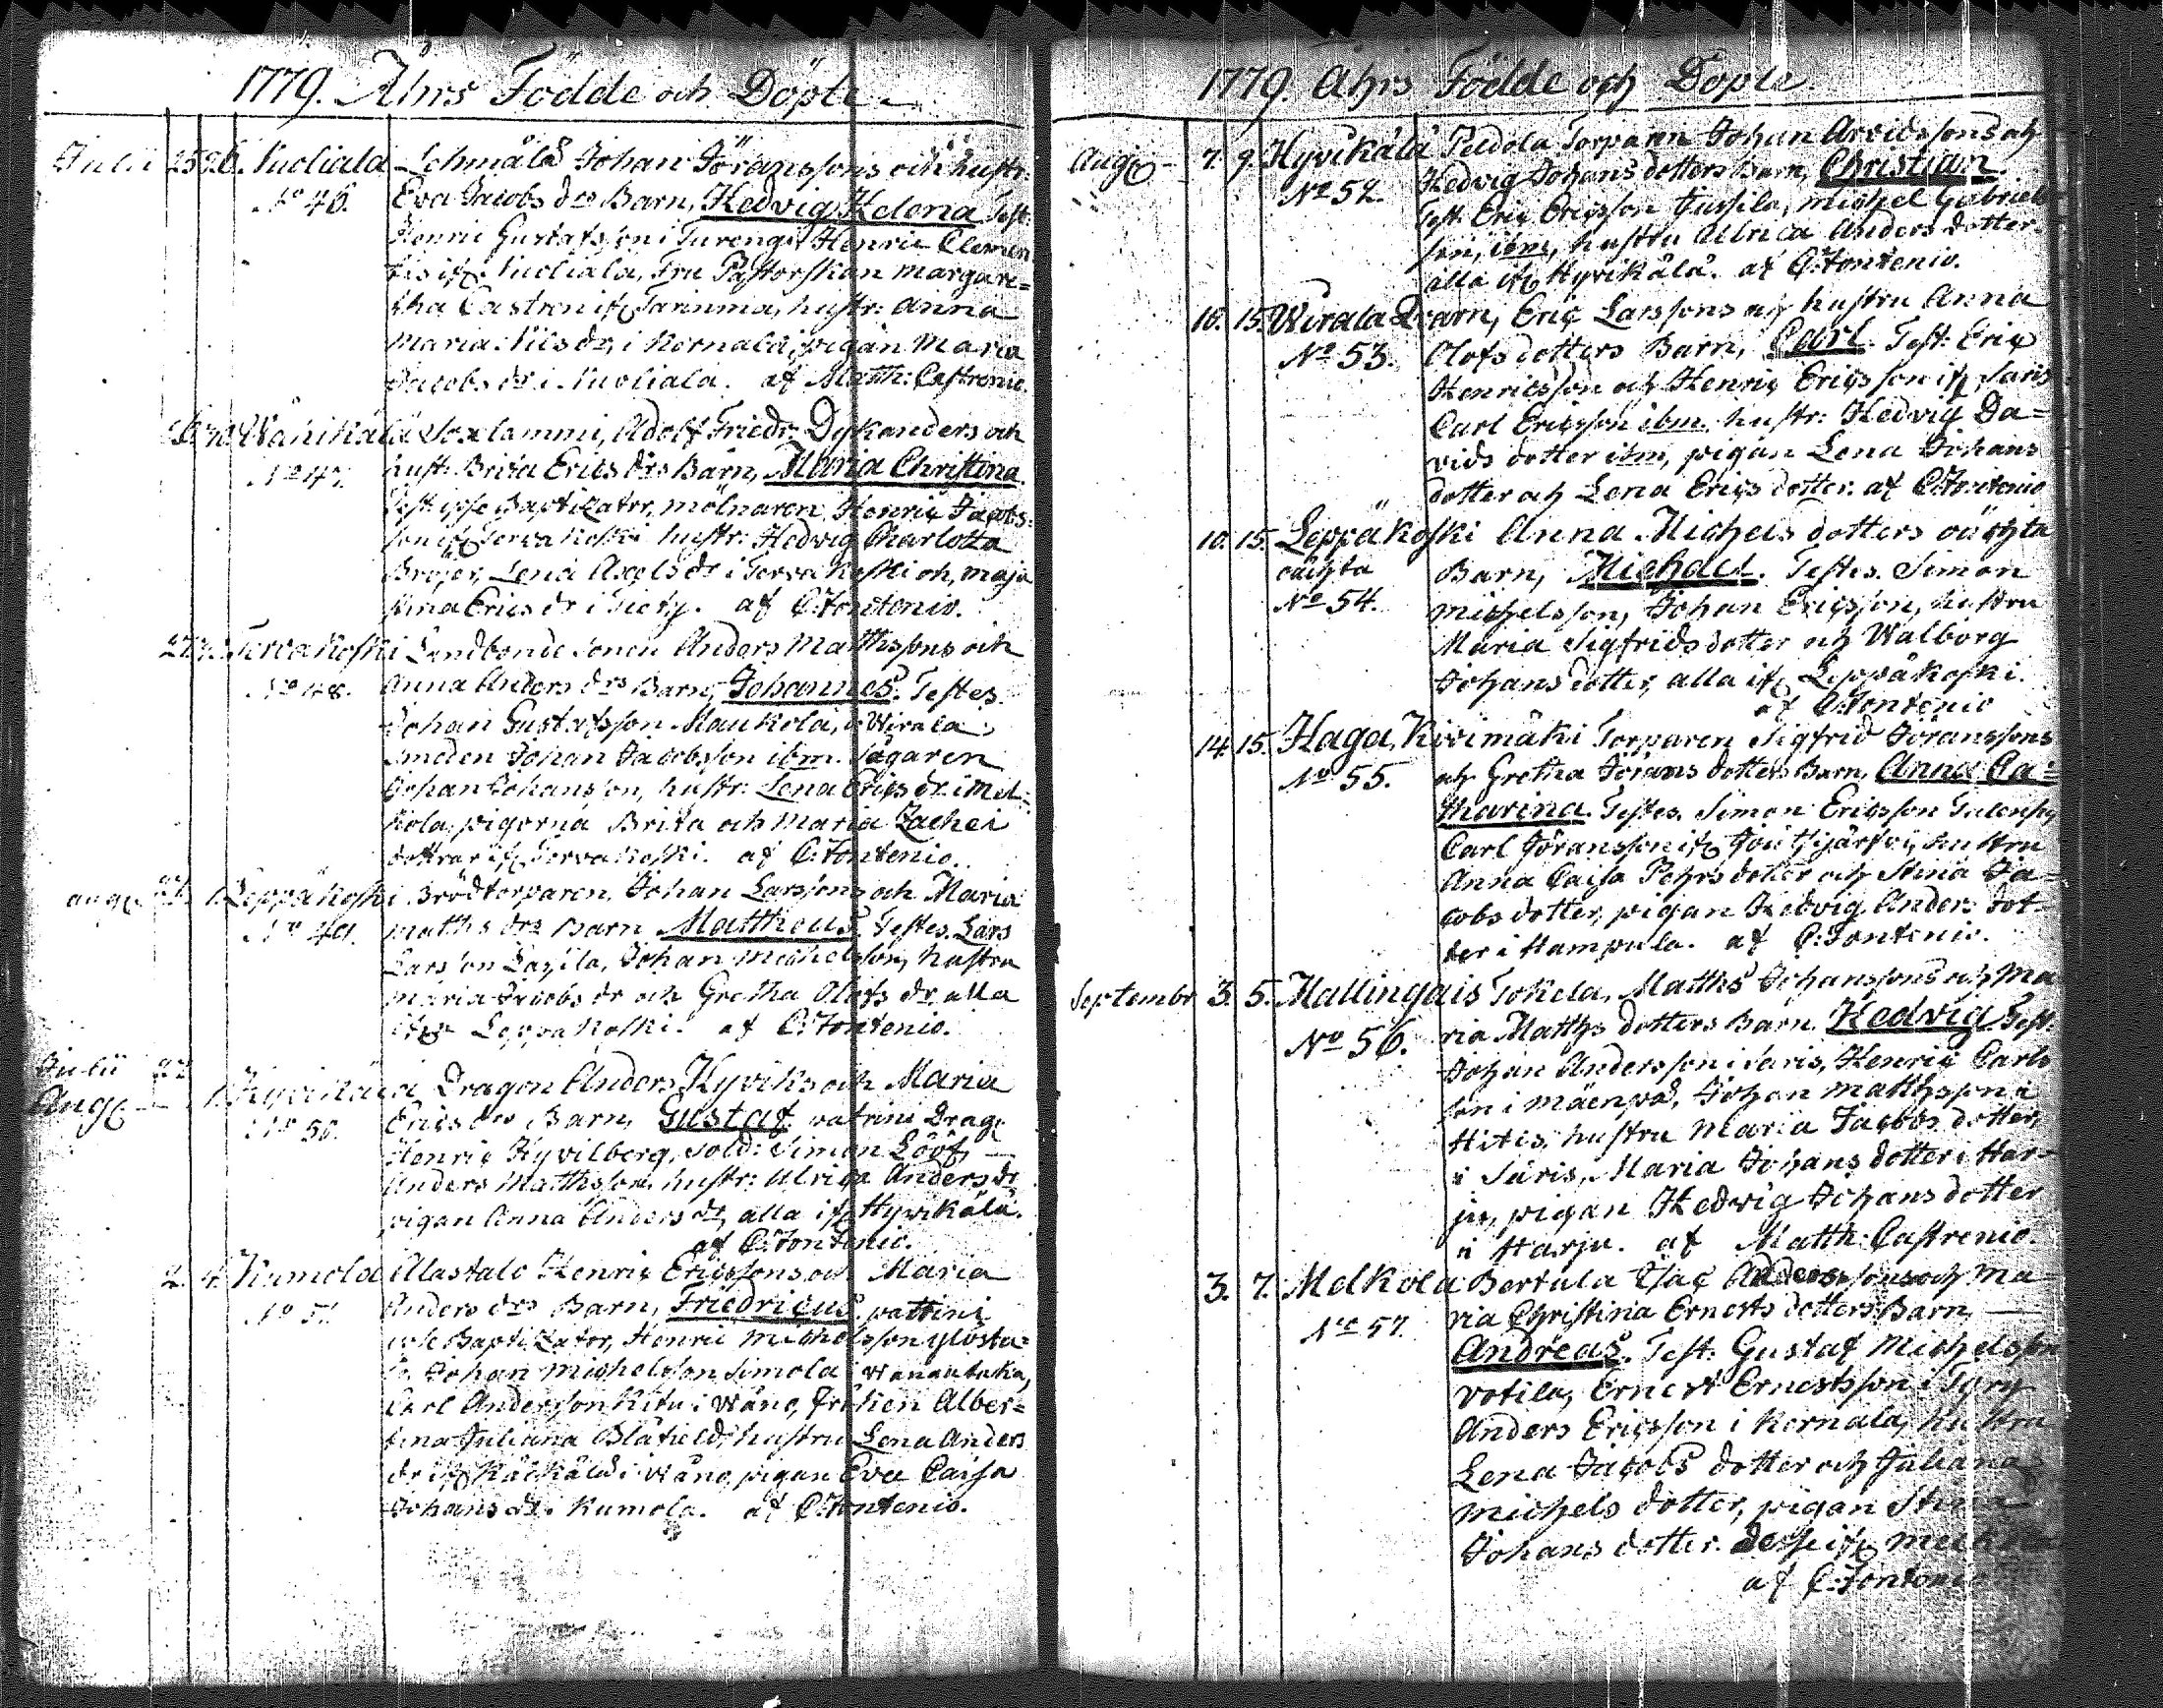 1779. Åhrs Födde och Döpte
Julii 25 26. Nuoliala Lehmälä Johan Jöranssons och hustr:
No 46. Eva Jacobs drs Barn, Hedvig Helena Test:
Henric Gustafsson i Turengi Henric Clemen
tis if: Nuoliala, Fru Pastorskan Margare=
tha Castren if: Tarinma, hustr: Anna
Maria Nils dr, i Kernala, pigan Maria
Jacobs dr i Nuoliala. af Matth: Castrenio.
Wänikälä Adolf Friedr. Dykanders och
No 47. hust: Brita Erics drs Barn, Maria Christina.
Test: ipse Baptizator, mölnaren Henric Jacobs=
son if: Tervakoski hustr: Hedvig Charlotta
Bröjer, Lena Axels dr i Tervakoski och, Maja
Stina Erics dr i af C: Fontenio.
27. Tervakoski Landbonde Sonen Anders Matthssons och
No 48. Anna Anders drs Barn, Johannes. Testes
Johan Gustafsson Maukola, i Wirala
Smeden Johan Jacobsson ibm. Sågaren
Johan Johansson, hustr: Lena Erics dr i Mel=
kola, pigorna Brita och Maria Zachei
dottrar if: Tervakoski. af C: Fontenio.
aug: 1. Leppäkoski Brödtorparen Johan Larssons och Maria
No 49. Matths drs Barn Mattheus. Testes. Lars
Larsson Johan Michelsson, hustru
Maria Jacobs dr och Gretha Olofs dr alla
if: Leppäkoski. af C: Fontenio.
Julii
Aug: 1. Hyvikälä Dragon Anders Hyviks och Maria
No 50. Erics drs Barn, Gustaf. patrini Drag:
Henric Hyvilberg, Sold: Simon Lööf,
Anders Matthsson. hustr: Ulrica Anders dr
pigan Anna Anders dr, alla if: Hyvikälä.
af C: Fontenio.
2. 4. Kumola Alastalo Henric Ericssons och Maria
No 51. Anders drs Barn, Friedricus. patrini
ipse Baptizator, Henric Michelsson Ylösta=
lo Johan Michelsson Simola i Wanantaka,
Carl Andersson Kitu i Wåno, fröken Alber=
tina Juliana Blåfield, hustru Lena Anders
dr if: i Wåno, pigan Eva Caisa
Johans dr i Kumola. af C: Fontenio.
1779. Ahrs Födde och Döpte.
Aug: 7. 9. Hyvikälä Torparen Johan Arvidssons och
No 52. Hedvig Johans dotters Barn, Christian.
Test: Eric Ericsson Jussila, Michel Gabriels
son, ibm, hustru Ulrica Anders dotter
alla if: Hyvikälä. af C: Fontenio.
10. 15. Wirala Eric Larssons och hustru Anna
No 53. Olofs dotters Barn, Carl. Test: Eric
Henricsson och Henric Ericsson if: Saris
Carl Ericsson ibm. hustr: Hedvig Da=
vids dotter ibm, pigan Lena Johans
dotter och Lena Erics dotter. af C: Fontenio
10. 15. Leppäkoski Anna Michels dotters oächta
oächta Barn, Michael. Testes. Simon
No 54. Michelsson, Johan Ericsson, hustru
Maria Sigfrids dotter och Walborg
Johans dotter, alla if: Leppäkoski.
af C: Fontenio
14. 15. Haga, Kivimäki Torparen Sigfrid Jöranssons
No 55. och Gretha Jörans dotters Barn, Anna Ca=
tharina. Testes. Simon Ericsson
Carl Jöransson if: hustru
Anna Caisa Pehrs dotter och Stina Ja=
cobs dotter, pigan Hedvig Anders dot=
ter i Hampula. af C: Fontenio.
September 3. 5. Mallingais Tokela, Matths Johanssons och Ma
No 56. ria Matths dotters Barn. Hedvig. Test.
Johan Andersson i Saris, Henric Carls
son i Mäenpä, Johan Matthsson i
Hitis, hustru Maria Jacobs dotter,
i Saris, Maria Johans dotter i Har=
ju, pigan Hedwig Johans dotter
i Harju. af Matth: Castrenio.
3. 7. Melkola Bertula Isac Anderssons och Ma=
No 57. ria Christina Ernests dotters Barn,
Andreas. Test: Gustaf Michelsson
Votila, Ernest Ernestsson i
Anders Ericsson i Kernala, hustru
Lena Jacobs dotter och Juliana
Michels dotter, pigan Stina
Johans dotter.
af C: Fontenio